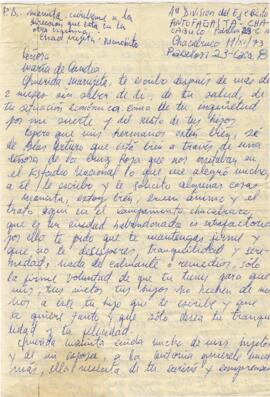 P.D. mamita, escríbeme a la
dirección que está en la
otra
1ª División del Ejército
ANTOFAGASTA - CHA-
CABUCO. Pabellón 23-C
Chacabuco 11/ /73
Pabellón 23- Casa 8
Señora
María de
Querida mamita, te escribo después de más de
2 meses sin saber de ti, de tu salud, de
tu situación económica, como de tu inquietud
por mi suerte y del resto de tus hijos.
Espero que mis hermanos estén bien, sé
de Arturo que está bien a través de una
señora de la Cruz Roja que nos visitaba en
el Estadio Nacional lo que me alegró mucho,
a él le escribo y le solicito algunas cosas.
Mamita, estoy bien, buen ánimo y el
trato aquí en el campamento Chacabuco,
que es un ciudad abandonada es satisfactorio
por ello te pido que te mantengas firme y
que no te desesperes, tranquilidad y sere-
nidad, nada de calmante o remedios, sólo
la firme voluntad de que tú tienes para que
mis, tus nietos, tus hijos no hechen de me-
nos a este tu hijo que te escribe y que
la quiere tanto y que sólo desea tu tranqui-
lidad y tu felicidad.
Querida mamita cuida mucho de mis hijitos
y de mi esposa, a la Antonia quiérela mucho
más, ella necesita de tu cariño y comprensión